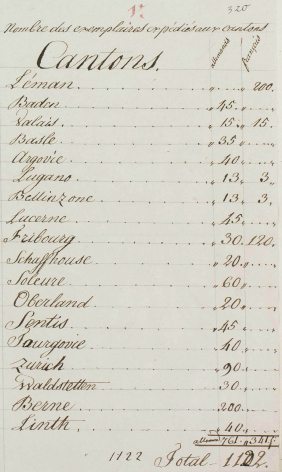 320
Nombre des exemplaires expédiés aux cantons
Cantons. allemands français
Léman 200.
Baden 45
Valais 15 15.
Basle 35
Argovie 40
Lugano 13 3
Bellinzone 13 3
Lucerne 45
Fribourg 30 120.
Schaffhouse 20
Soleure 60
Oberland 20
Sentis 45
Turgovie 40
Zürich 90
Waldstetten 30
Berne 200
Linth 40
761 341
1122 Total 1122.